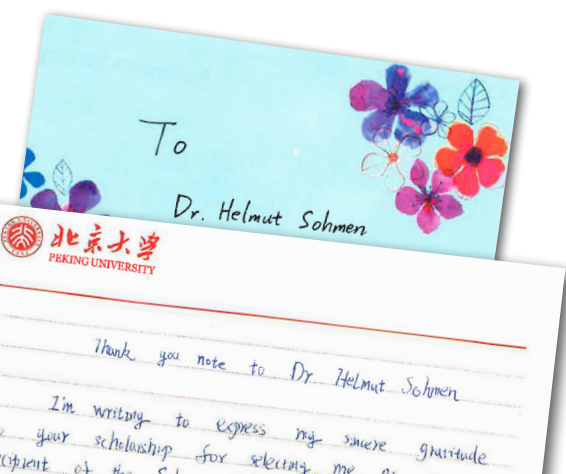 To
Dr. Helmut Sohmen
北京大学
PEKING UNIVERSITY
Thank you note to Dr Helmut Sohmen
I'm writing to express my sincere gratitude
your scholarship for selecting me as
of the